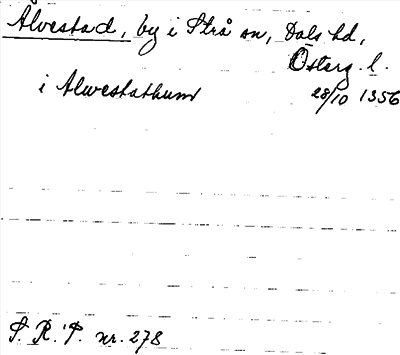 Ålvestad, by i Strå sn, Dals hd,
Österg. l.
i Alwestathum 28/10 1356
S. R. P. nr. 278